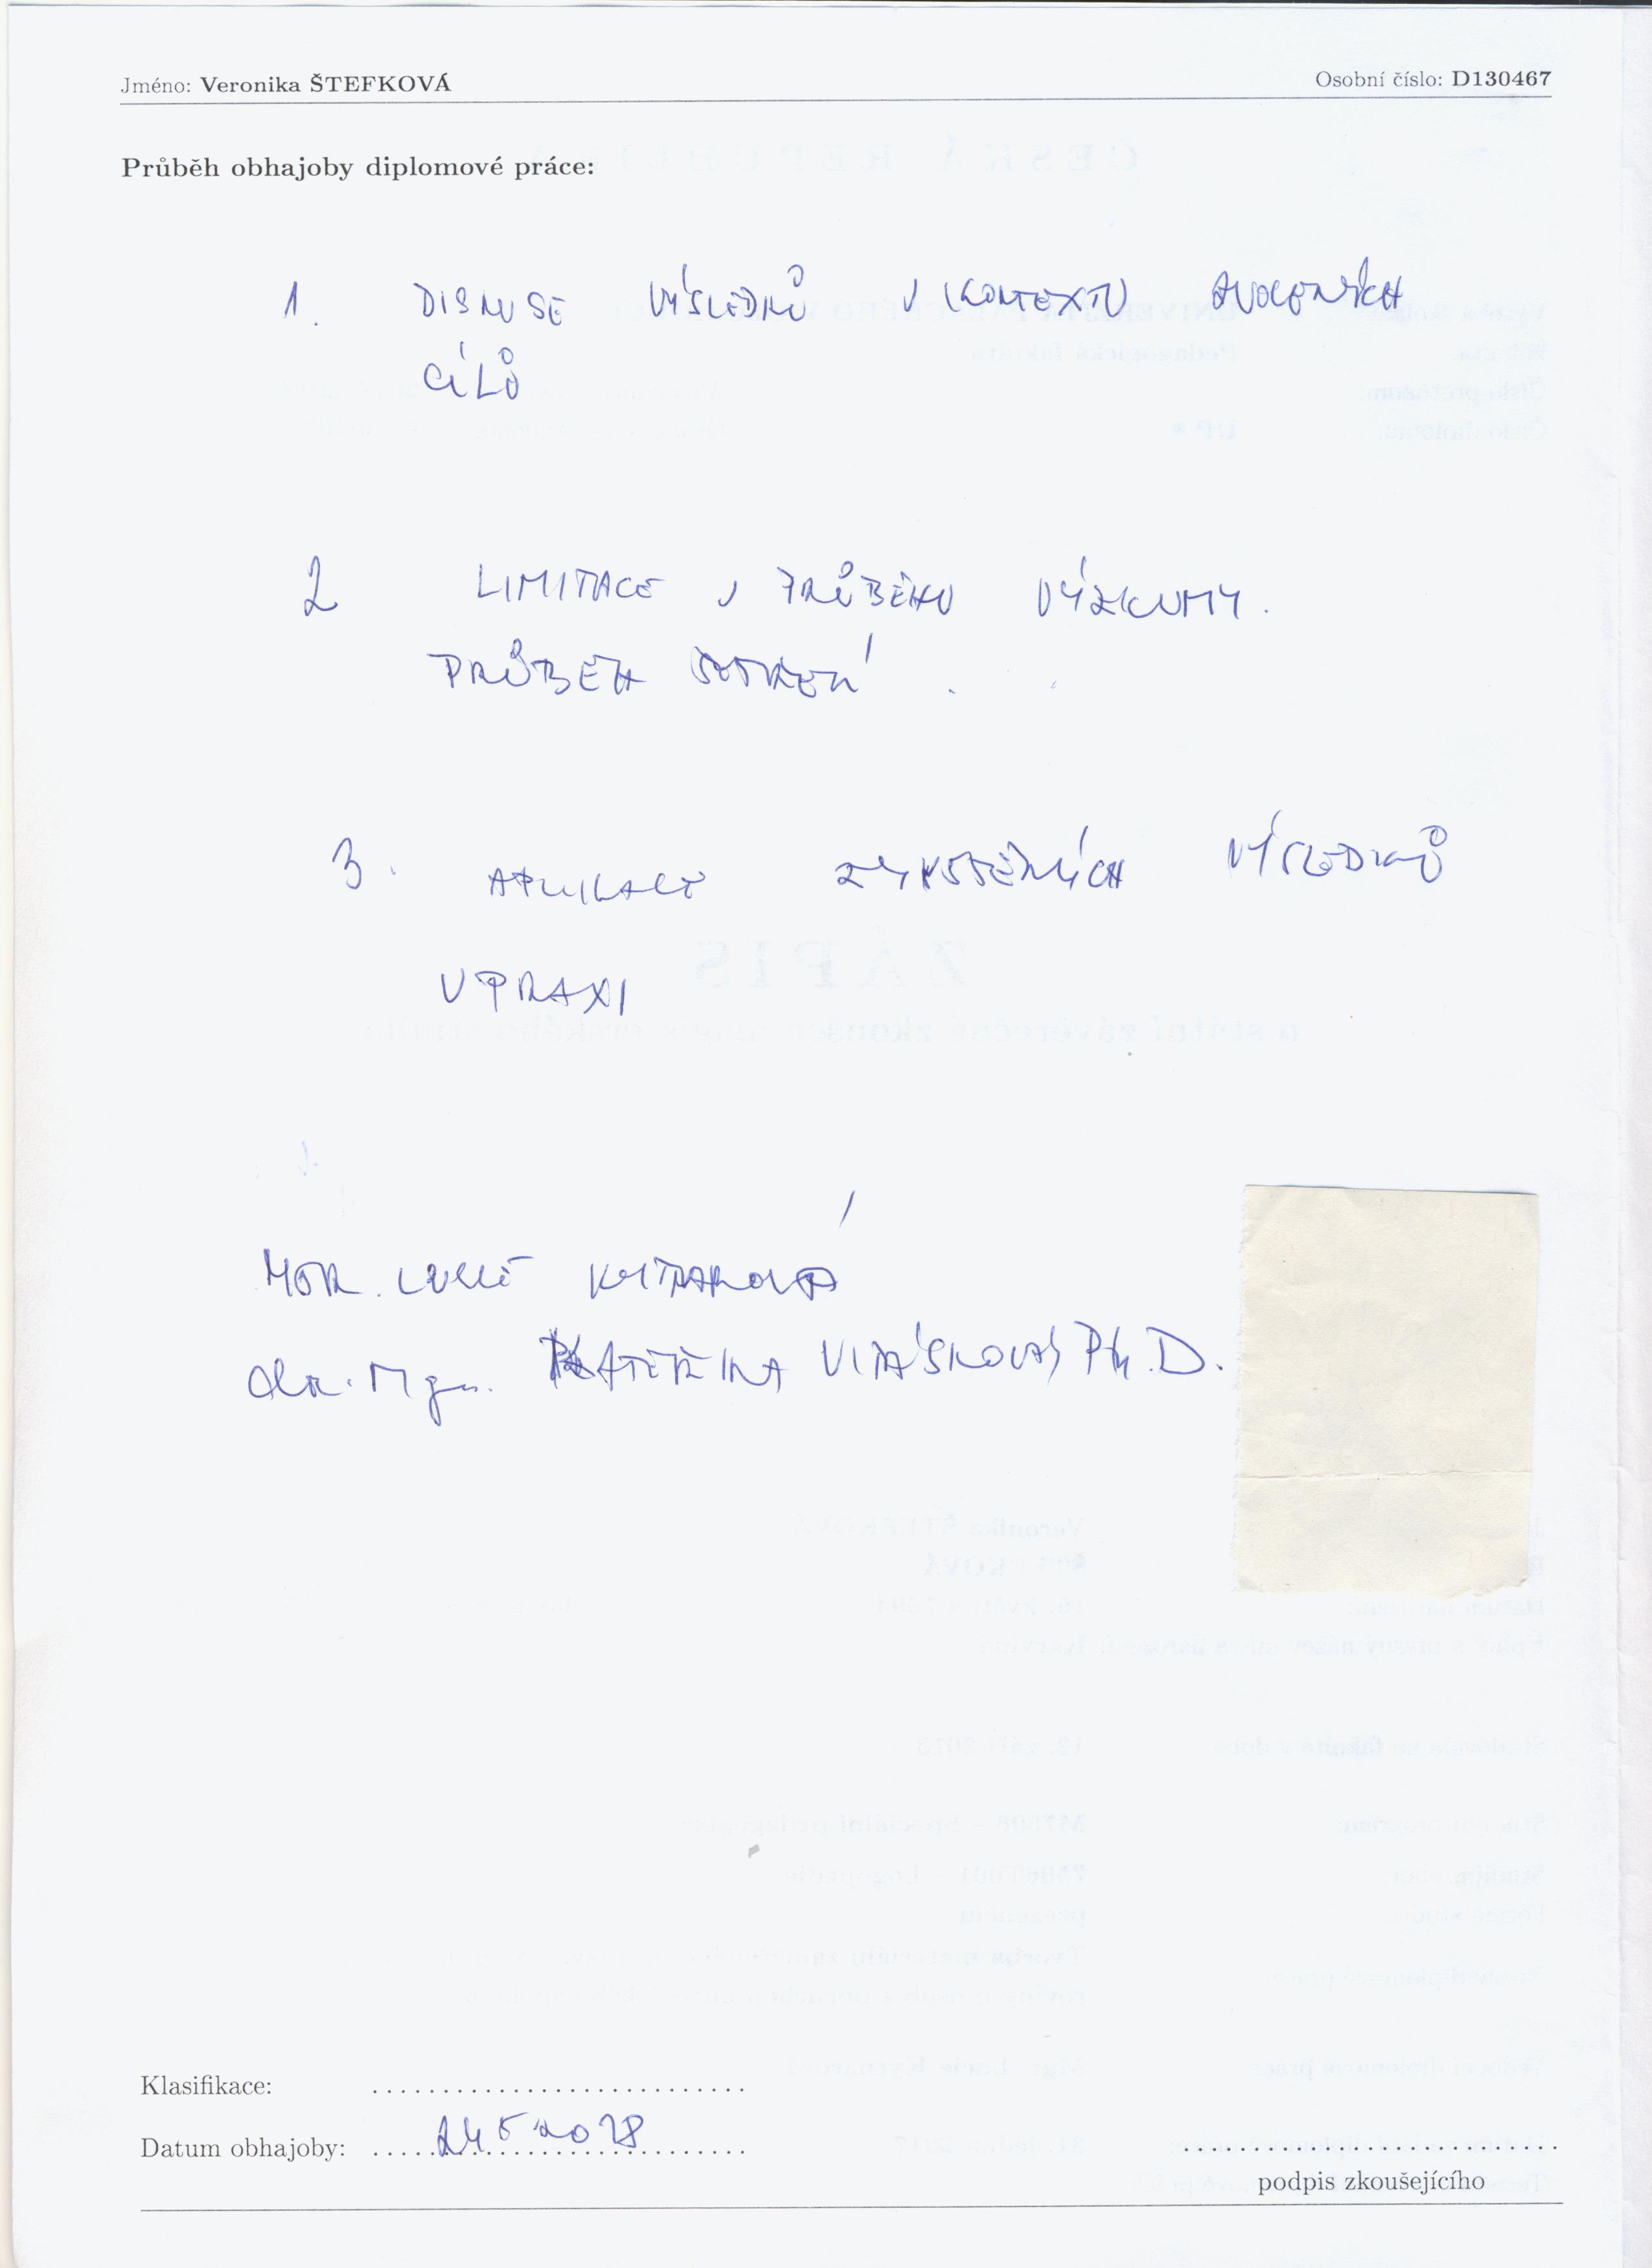 Jméno: Veronika ŠTEFKOVÁ Osobní číslo: D130467
Průběh obhajoby diplomové práce:
1. DISKUSE VÝSLEDKŮ V KONTEXTU ZVOLENÝCH
CÍLŮ
2 LIMITACE V PRŮBĚHU VÝZKUMU.
PRŮBĚH
3. APLIKACE ZJIŠTĚNÝCH VÝSLEDKŮ
V PRAXI
MGR. LUCIE
Mgr. KATEŘINA VITÁSKOVÁ, Ph.D.
Klasifikace:
Datum obhajoby: 24 5 2018
podpis zkoušejícího